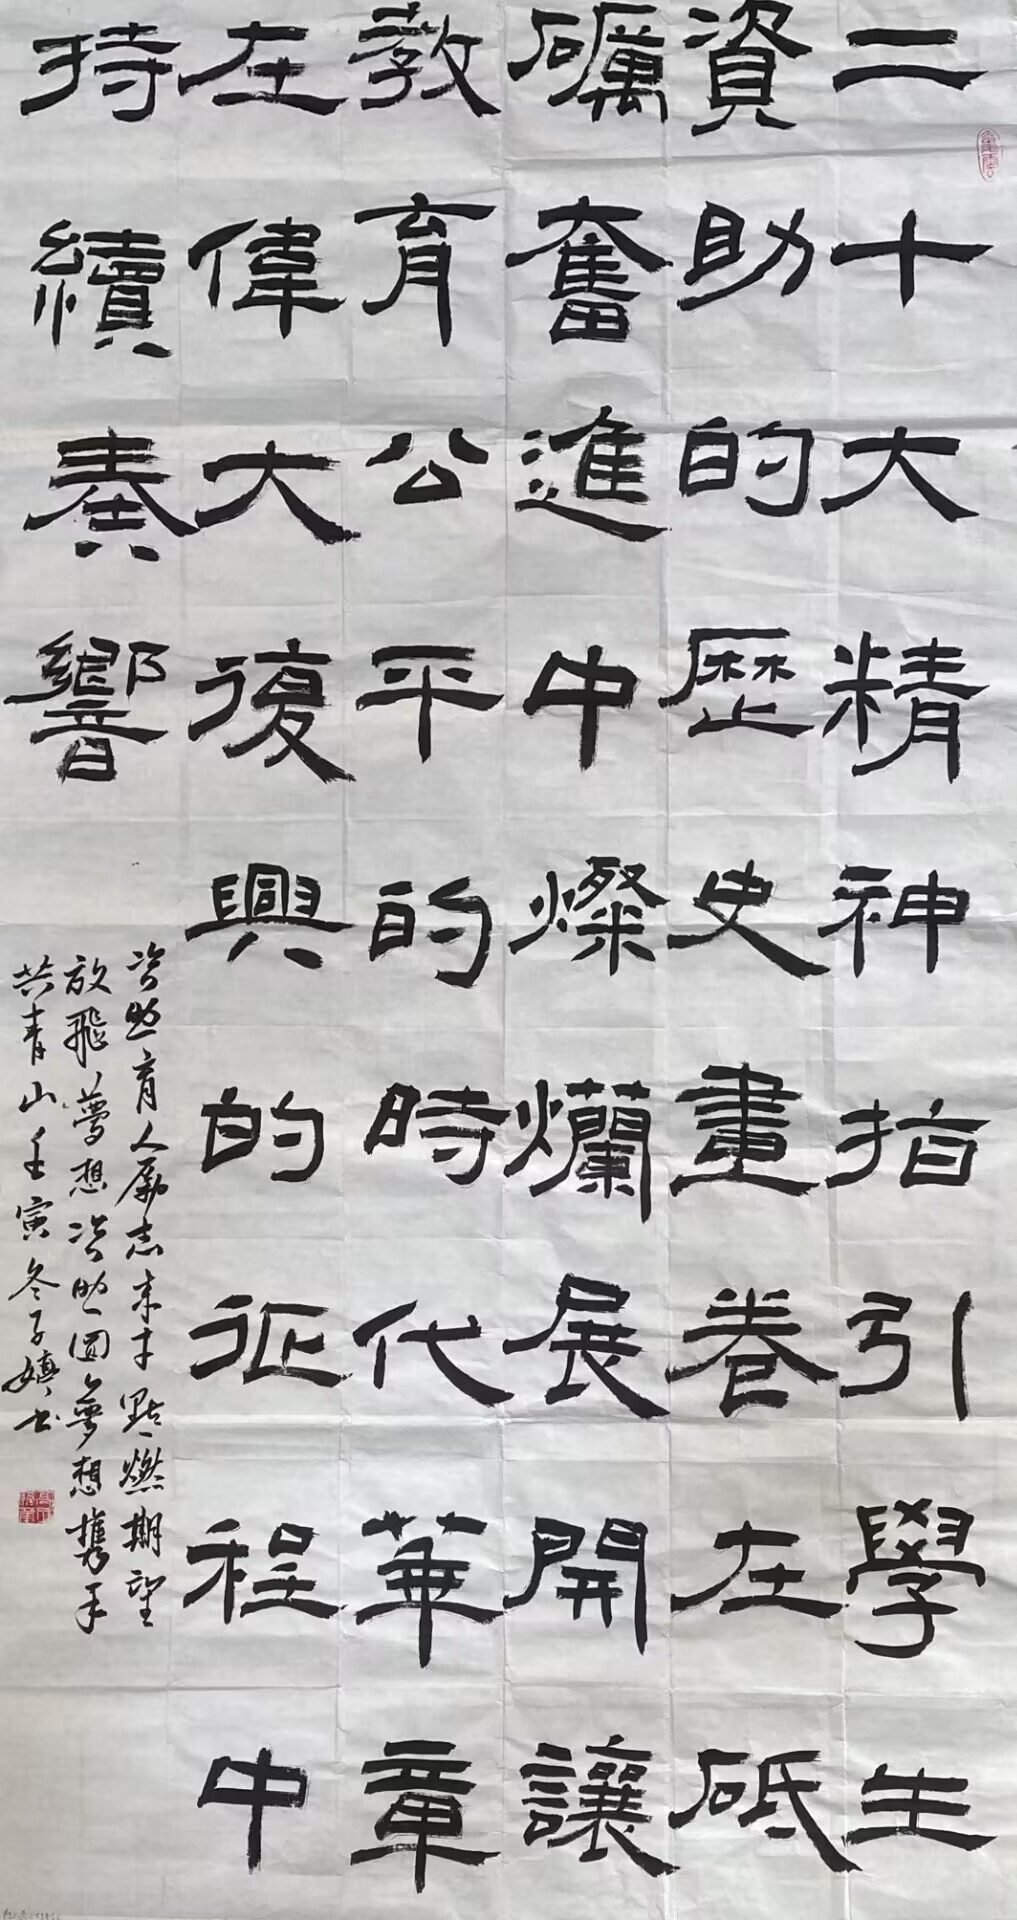 二十大精神指引學生
資助的歷史畫卷在砥
礪奮進中燦爛展開讓
教育公平的時代華章
在偉大復興的征程中
持續奏響
資助育人勵志未才點燃期望
放飛夢想資助圓夢想攜手
共青山壬寅冬子嬌書